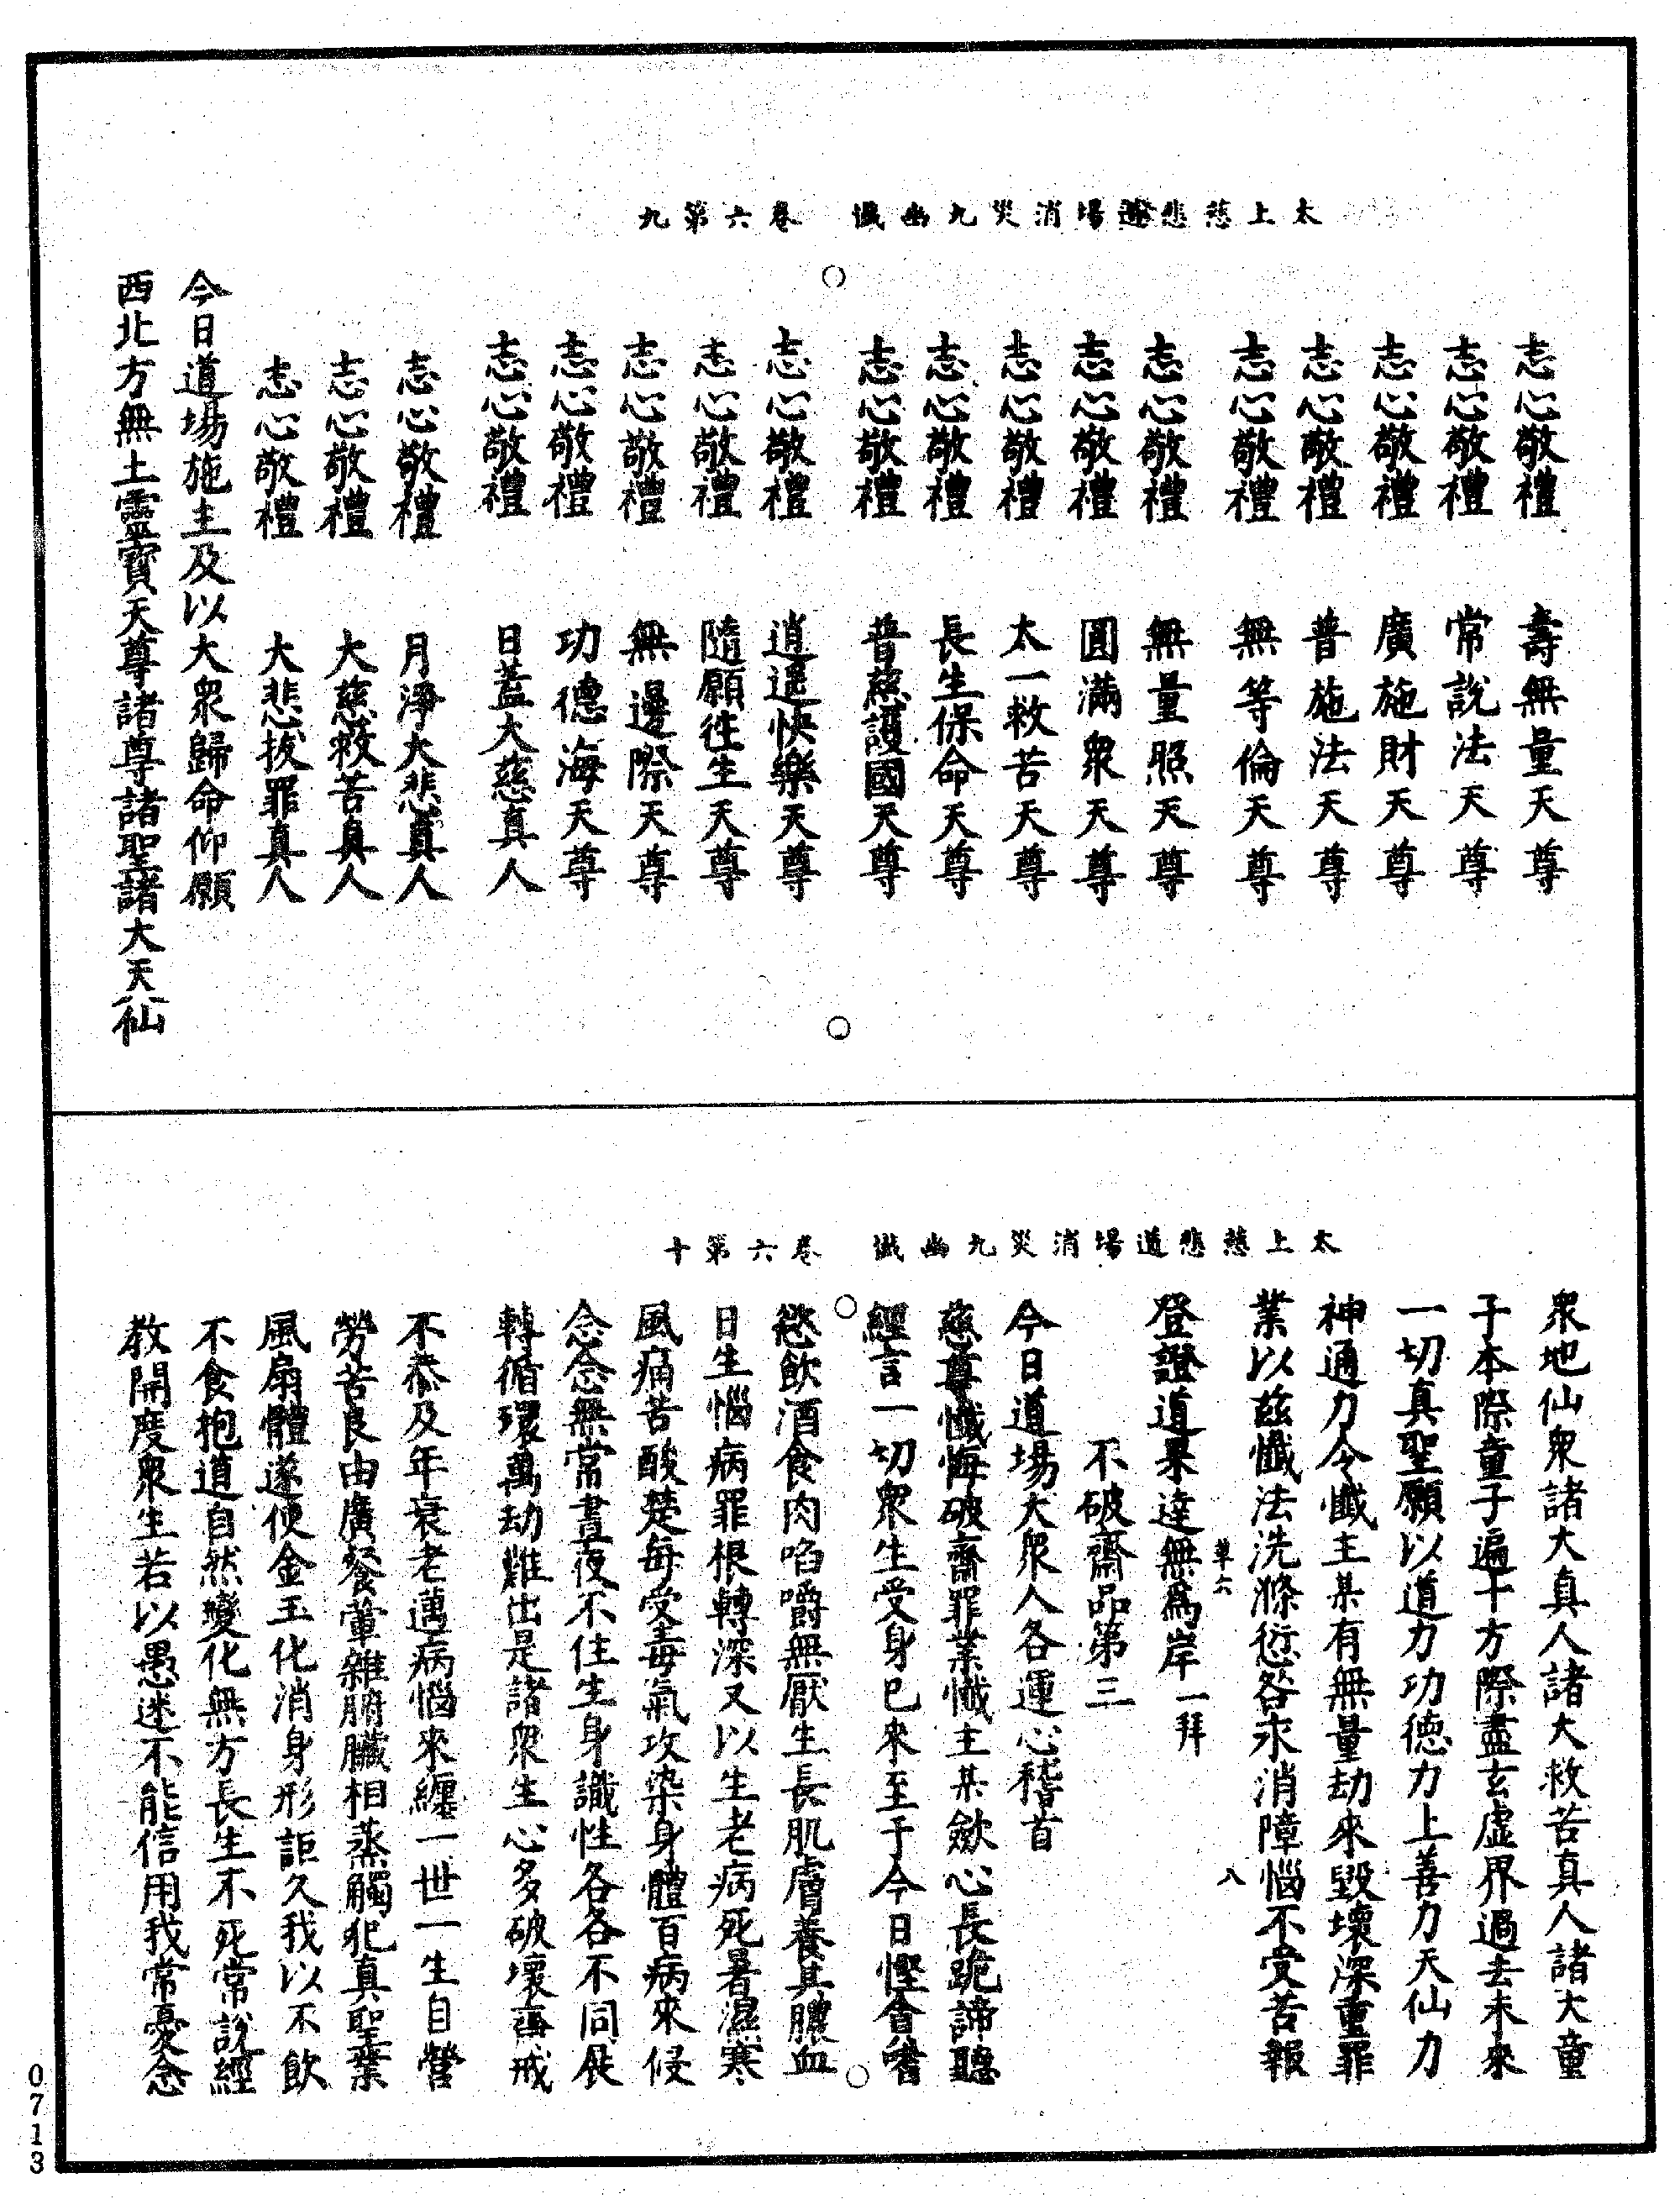 太上慈悲道場消災九幽懺　卷六第九
志心敬禮　壽無量天尊
志心敬禮　常說法天尊
志心敬禮　廣施財天尊
志心敬禮　普施法天尊
志心敬禮　無等倫天尊
志心敬禮　無量照天尊
志心敬禮　圓滿衆天尊
志心敬禮　太一救苦天尊
志心敬禮　長生保命天尊
志心敬禮　普慈護國天尊
志心敬禮　逍遥快樂天尊
志心敬禮　隨願往生天尊
志心敬禮　無邊際天尊
志心敬禮　功德海天尊
志心敬禮　日蓋大慈真人
志心敬禮　月淨大悲真人
志心敬禮　大慈救苦真人
志心敬禮　大悲拔罪真人
今日道場施主及以大衆歸命仰願
西北方無上靈寶天尊諸尊諸聖諸大天仙
太上慈悲道場消災九幽懺　卷六第十
衆地仙衆諸大真人諸大救苦真人諸大童
子本際童子遍十方際盡玄虛界過去未來
一切真聖願以道力功德力上善力天仙力
神通力令懺主某有無量劫來毀壞深重罪
業以兹懺法洗滌愆咎永消障惱不受苦報
草六　八
登證道果達無爲岸一拜
不破齋品第三
今日道場大衆人各運心稽首
慈尊懺悔破齋罪業懺主某歛心長跪諦聽
經言一切衆生受身已來至于今日慳貪嗜
慾飲酒食肉啗嚼無厭生長肌膚養其膿血
日生惱病罪根轉深又以生老病死暑濕寒
風痛苦酸楚每受毒氣攻染身體百病來侵
念念無常晝夜不住生身識性各各不同展
轉循環萬劫難出是諸衆生心多破壞齋戒
不恭及年衰老邁病惱來纏一世一生自營
勞苦良由廣餐葷雜腑臟相蒸觸犯真聖業
風扇體遂使金玉化消身形詎久我以不飲
不食抱道自然變化無方長生不死常說經
教開度衆生若以愚迷不能信用我常憂念
0713